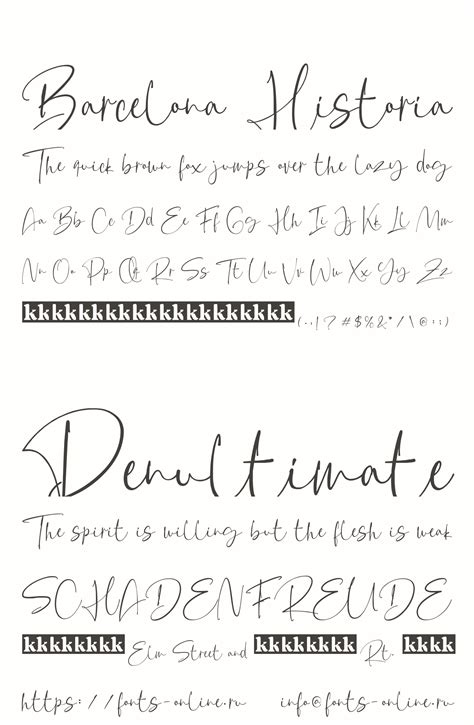 Barcelona Historia
The quick brown fox jumps over the lazy dog
Aa Bb Cc Dd Ee Ff Gg Hh Ii Jj Kk Ll Mm
Nn Oo Pp Qq Rr Ss Tt Uu Vv Ww Xx Yy Zz
kkkkkkkkkkkkkkkkkkkkk(.,!?#$%&*/\@:;)
Denultimate
The spirit is willing but the flesh is weak
SCHADENFREUDE
kkkkkkkk Elm Street and kkkkkkkk Rt. kkkk
https://fonts-online.ru info@fonts-online.ru